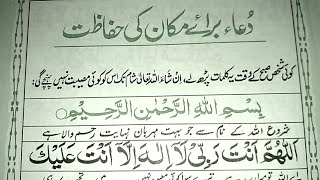 دُعاء برائے مکان کی حفاظت
کوئی شخص صبح کے وقت یہ کلمات پڑھ لے، اِنْ شَاءَ اللہُ تعالیٰ شام تک اس کو کوئی مصیبت نہیں پہنچے گی:
بِسْمِ اللهِ الرَّحْمٰنِ الرَّحِيْمِ
شروع اللہ کے نام سے جو بہت مہربان نہایت رحم والا ہے
اَللّٰهُمَّ اَنْتَ رَبِّيْ لَآ اِلٰهَ اِلَّا اَنْتَ عَلَيْكَ